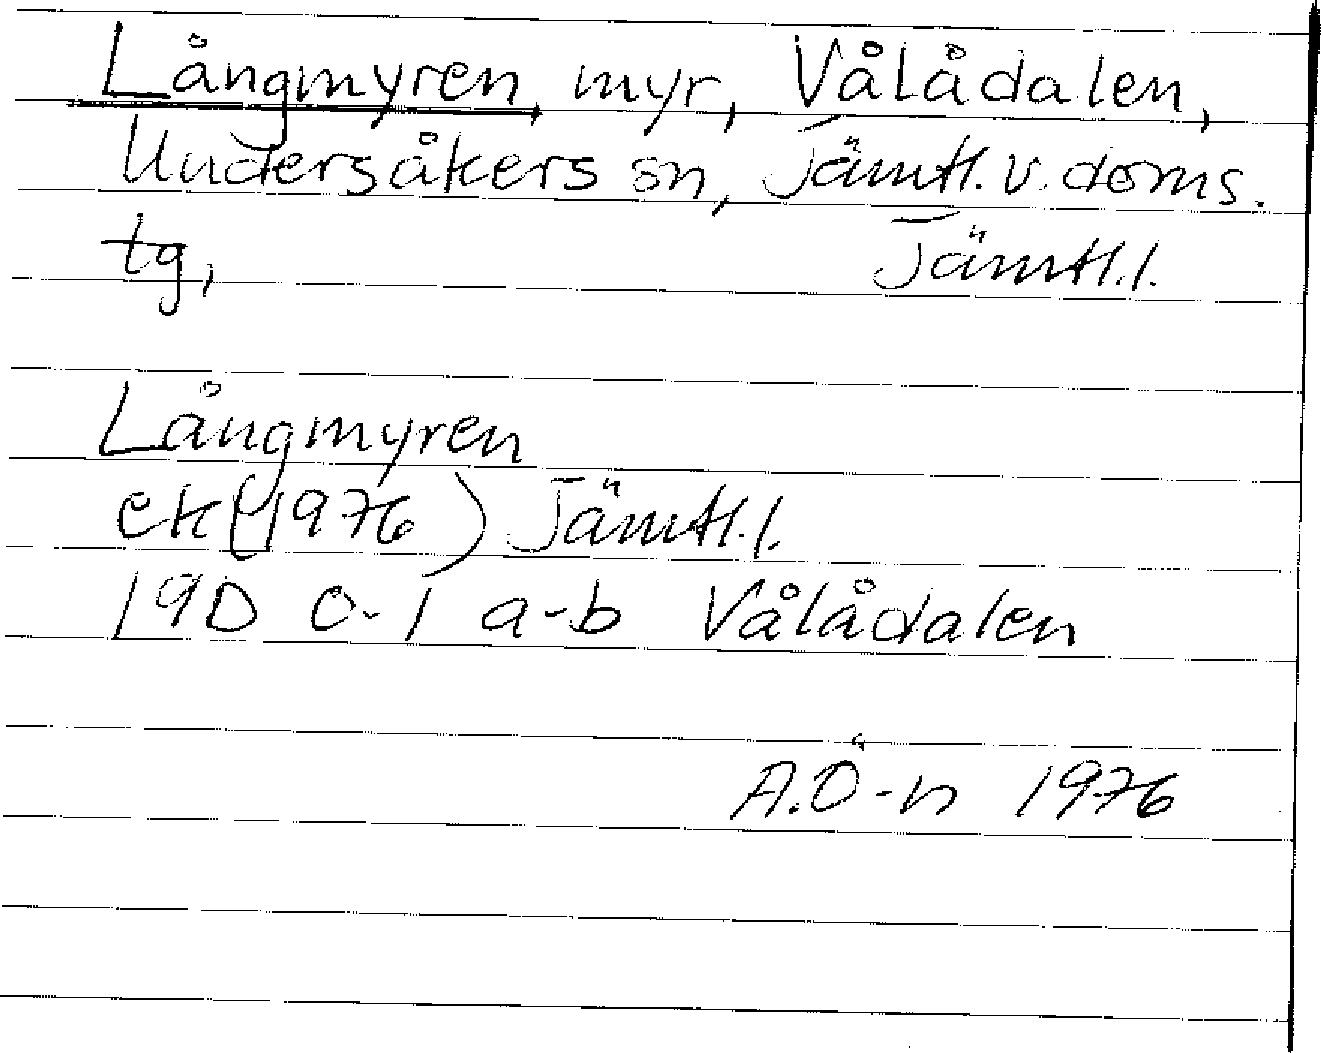 Långmyren, myr, Vålådalen,
Undersåkers sn, Jämtl. v. doms.
tg, Jämtl. l.
Långmyren
ek (1976) Jämtl. l.
19D 0-1 a-b Vålådalen
A.Ö-n 1976